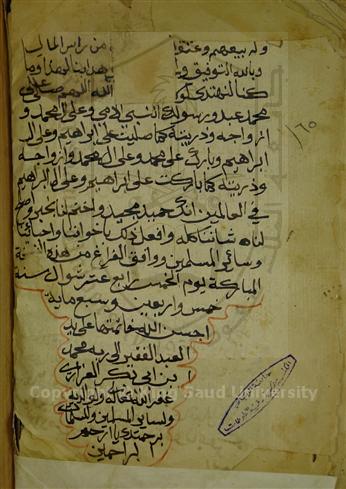 وله بيعهم وعتقهم من راس المال
وبالله التوفيق هدانا لهذا وما
كنا لنهتدي لولا الله اللهم صل على
محمد عبدك ورسولك النبي الامي وعلى ال محمد و
ازواجه وذريته كما صليت على ابراهيم وعلى ال
ابراهيم وبارك على محمد وعلى ال محمد وازواجه
وذريته كما باركت على ابراهيم وعلى ال ابراهيم
في العالمين انك حميد مجيد واختم لنا بخير واصلح
لنا شاننا كله وافعل ذلك باخواننا واحبائنا
وسائر المسلمين ووافق الفراغ من هذه النسخة
المباركة يوم الخميس رابع عشر شوال سنة
خمس واربعين وسبع مايه
احسن الله خاتمتها على يد
العبد الفقير الى ربه محمد
ابن ابي بكر
غفر الله تعالى له ولوالديه
ولسائر المسلمين والمسلمات
برحمتك يا ارحم
الراحمين
١٦٥
Copyright © King Saud University